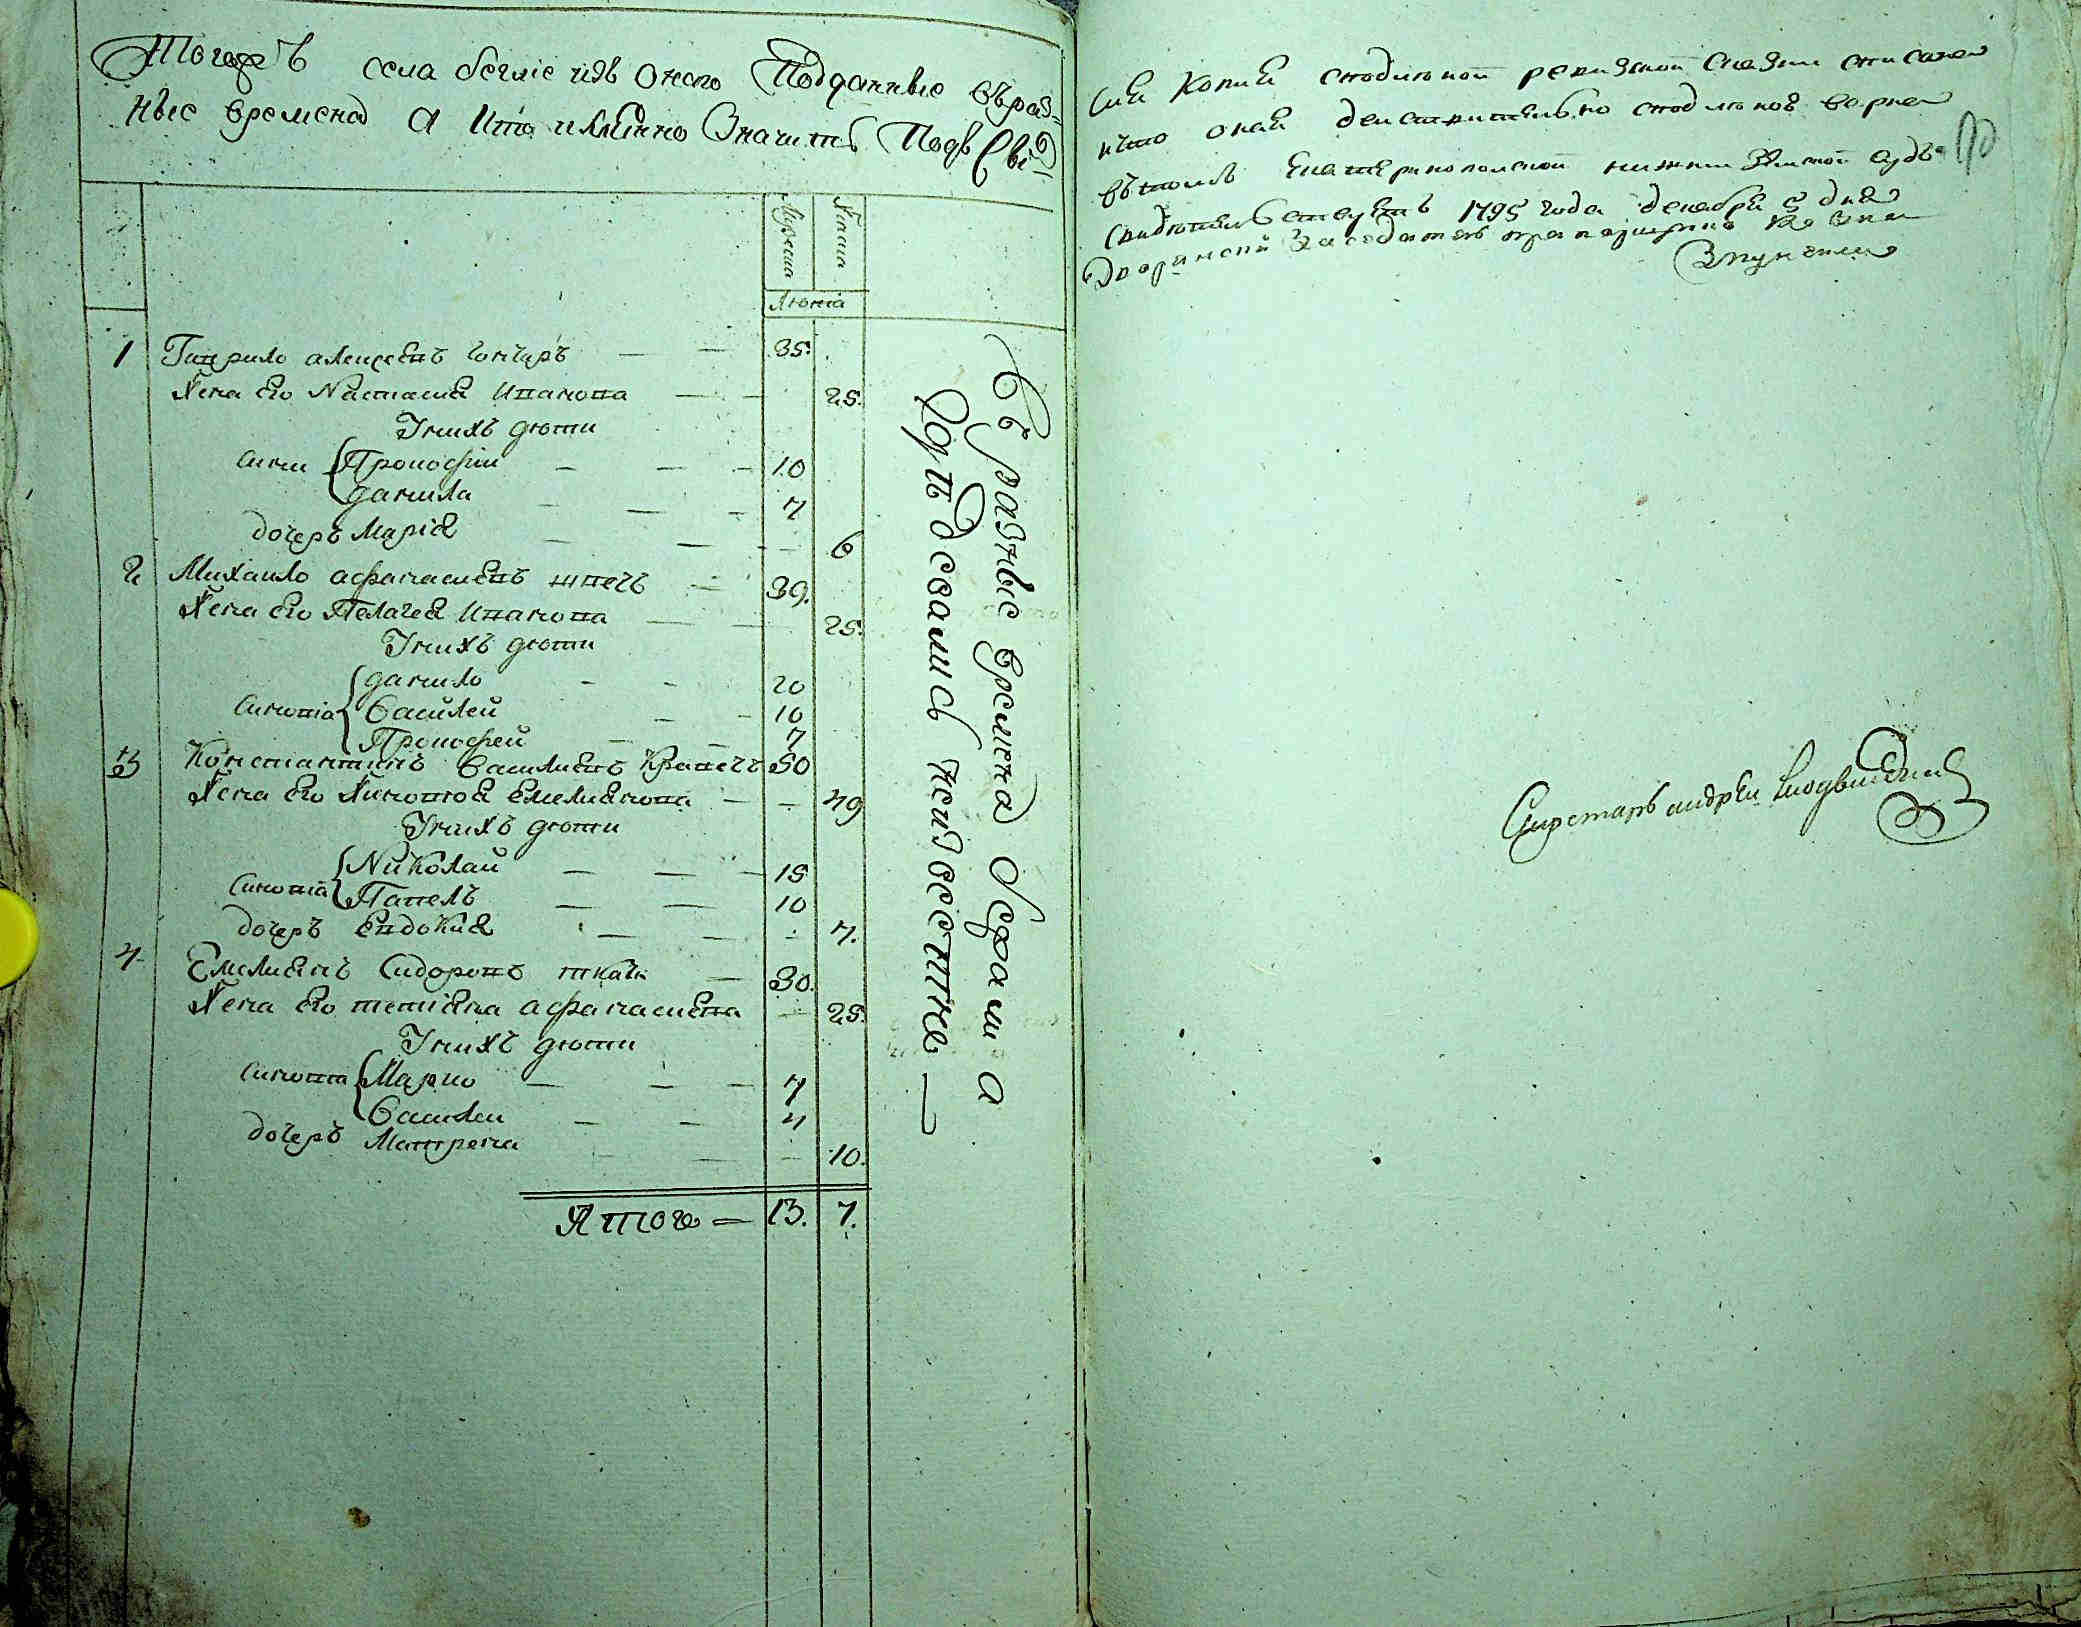 Тогожъ села беглие изъ оного Подданные въраз=
ные времена а кто имянно Значитъ Подъ Сим
Мужеска
Женска
Люета
1 Гаврило алексеевъ Гончаръ — — 35.
Жена его Настасия Иванова — — 25.
Унихъ дети
Сини Прокофiи — — — 10
данила — — — 7
дочеръ Марiя — — — 6
2 Михаило афанасиевъ швецъ — 39.
Жена его Палагея Иванова — — 25.
Унихъ дети
данило — — 20
Синовiа Василей — — 10
Прокофей — — 7
3 Константинъ Василиевъ Кравецъ 50
Жена его Емелианова — — 49
Унихъ дети
Николай — — — 15
Синовiа Павелъ — — 10
дочеръ Евдокия — — — 7.
4 Емелианъ Сидоровъ ткачъ — 30.
Жена его тетiяна афанасиева — 25.
Унихъ дети
Синовiа Марко — — — 7
Василеи — — 4
дочеръ Матрена — — — 10.
Итого — 13. 7.
Въ разные времена бежали а
куда сошлись неизвестно —
Сия копия стодлинной ревизской сказки списана
ичто оная действительно стодлиною верна
вътомъ Екатеринопольской нижни Земской судъ
свидетельствуетъ 1795 года декабря 5 дня
Дворянский Заседатель
90
Секретарь андреи